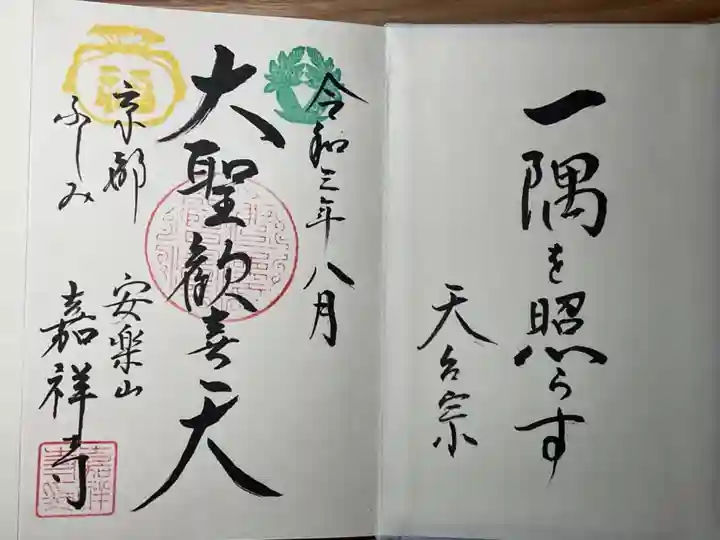 一隅を照らす
天台宗
令和三年八月
大聖歓喜天
京都
ふしみ
安楽山
嘉祥寺
福